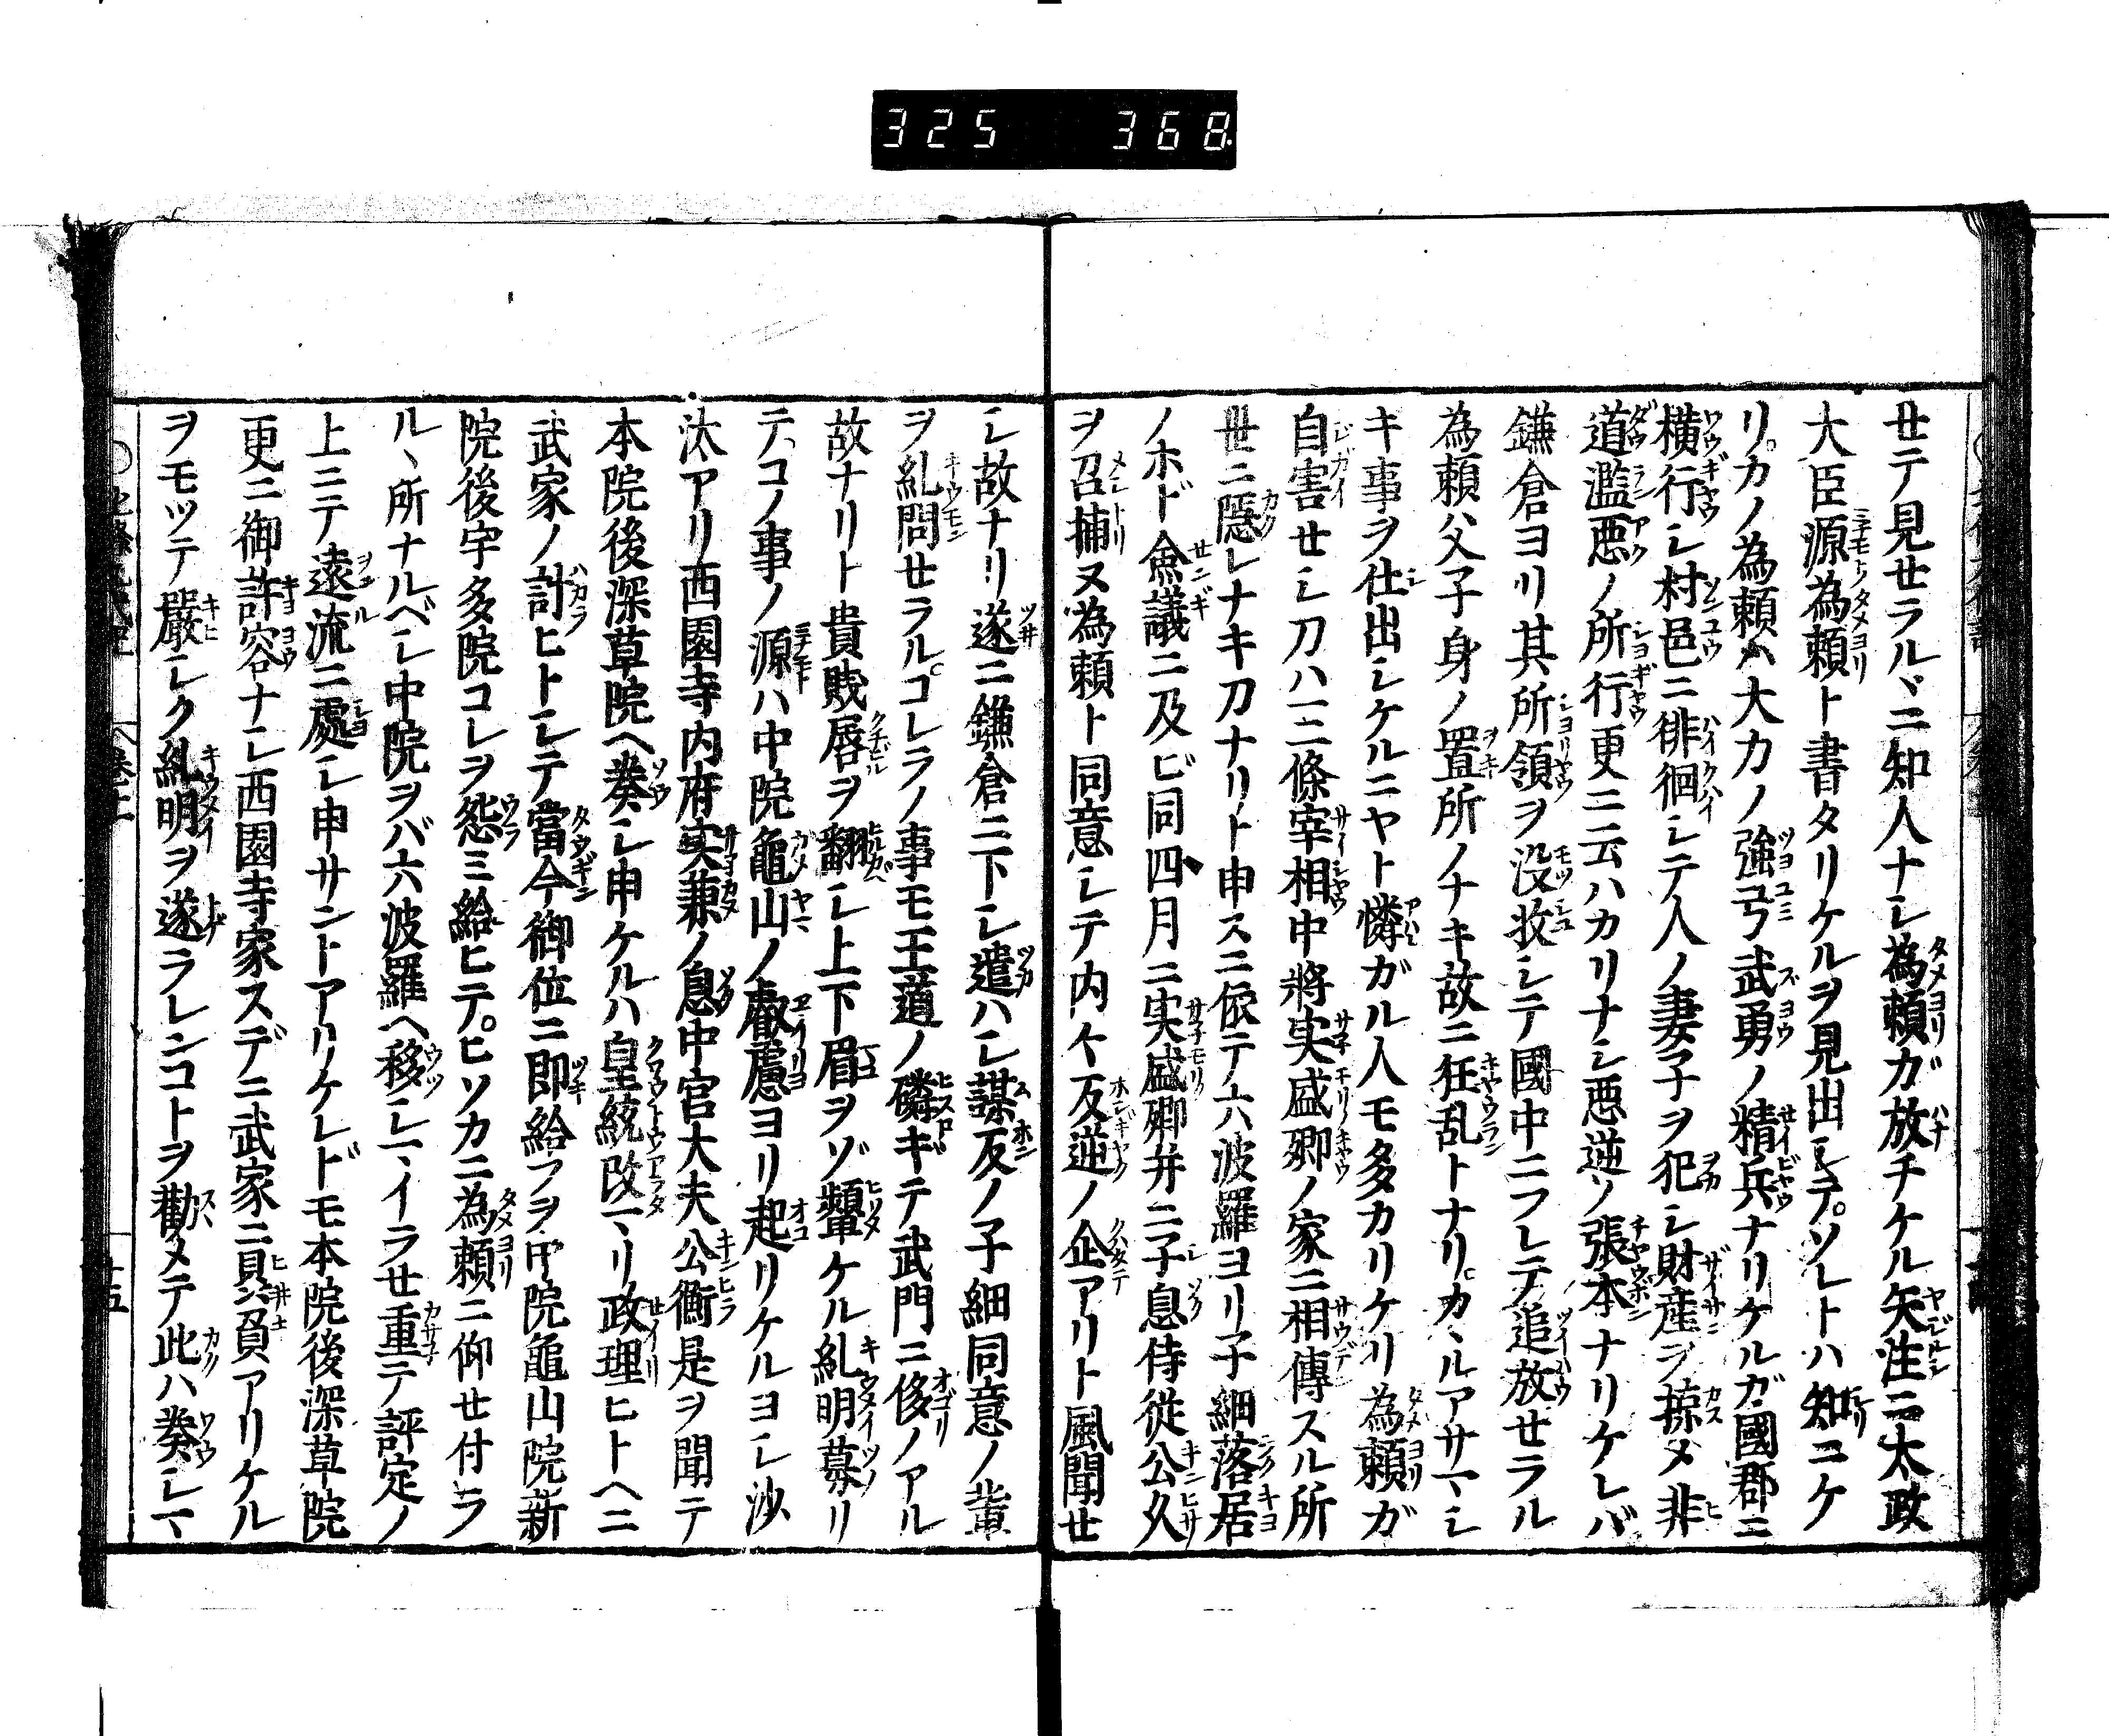 325 368
せテ見せラルヽニ知人ナシ為頼ガ放チケル矢注ニ太政
大臣源為頼ト書タリケルヲ見出シテ。ソレトハ知ニケ
リ。カノ為頼ハ大カノ強弓武勇ノ精兵ナリケルガ國郡ニ
横行シ村邑ニ徘徊シテ人ノ妻子ヲ犯シ財産ヲ掠メ非
道濫悪ノ所行更ニ云ハカリナシ悪逆ノ張本ナリケレバ
鎌倉ヨリ其所領ヲ没收シテ國中ニフレテ追放せラル
為頼父子身ノ置所ノナキ故ニ狂乱トナリ。カヽルアサマシ
キ事ヲ仕出シケルニヤト憐ガル人モ多カリケリ為頼ガ
自害せシ刀ハ三條宰相中將実盛卿ノ家ニ相傳スル所
世ニ隠レナキ刀ナリト申スニ依テ六波羅ヨリ子細落居
ノホド僉議ニ及ビ同四月ニ実盛卿并ニ子息侍從公久
ヲ召捕ヌ為頼ト同意シテ内々反逆ノ企アリト風聞せ
シ故ナリ遂ニ鎌倉ニ下シ遣ハシ謀反ノ子細同意ノ輩
ヲ糺問せラル。コレラノ事モ王道ノ磷ギテ武門ニ侈ノアル
故ナリト貴賎唇ヲ翻シ上下眉ヲゾ顰ケル糺明募リ
テ。コノ事ノ源ハ中院龜山ノ叡慮ヨリ起リケルヨシ沙
汰アリ西園寺内府実兼ノ息中官大夫公衡是ヲ聞テ
本院後深草院ヘ奏シ申ケルハ皇統改マリ政理ヒトヘニ
武家ノ計ヒトシテ當今御位ニ即給フヲ中院龜山院新
院後宇多院コレヲ怨ミ給ヒテ。ヒソカニ為頼ニ仰せ付ラ
ルヽ所ナルベシ中院ヲバ六波羅ヘ移シマイラせ重テ評定ノ
上ニテ遠流ニ處シ申サントアリケレドモ本院後深草院
更ニ御許容ナシ西園寺家スデニ武家ニ贔負アリケル
ヲモツテ嚴シク糺明ヲ遂ラレンコトヲ勸メテ此ハ奏シマ